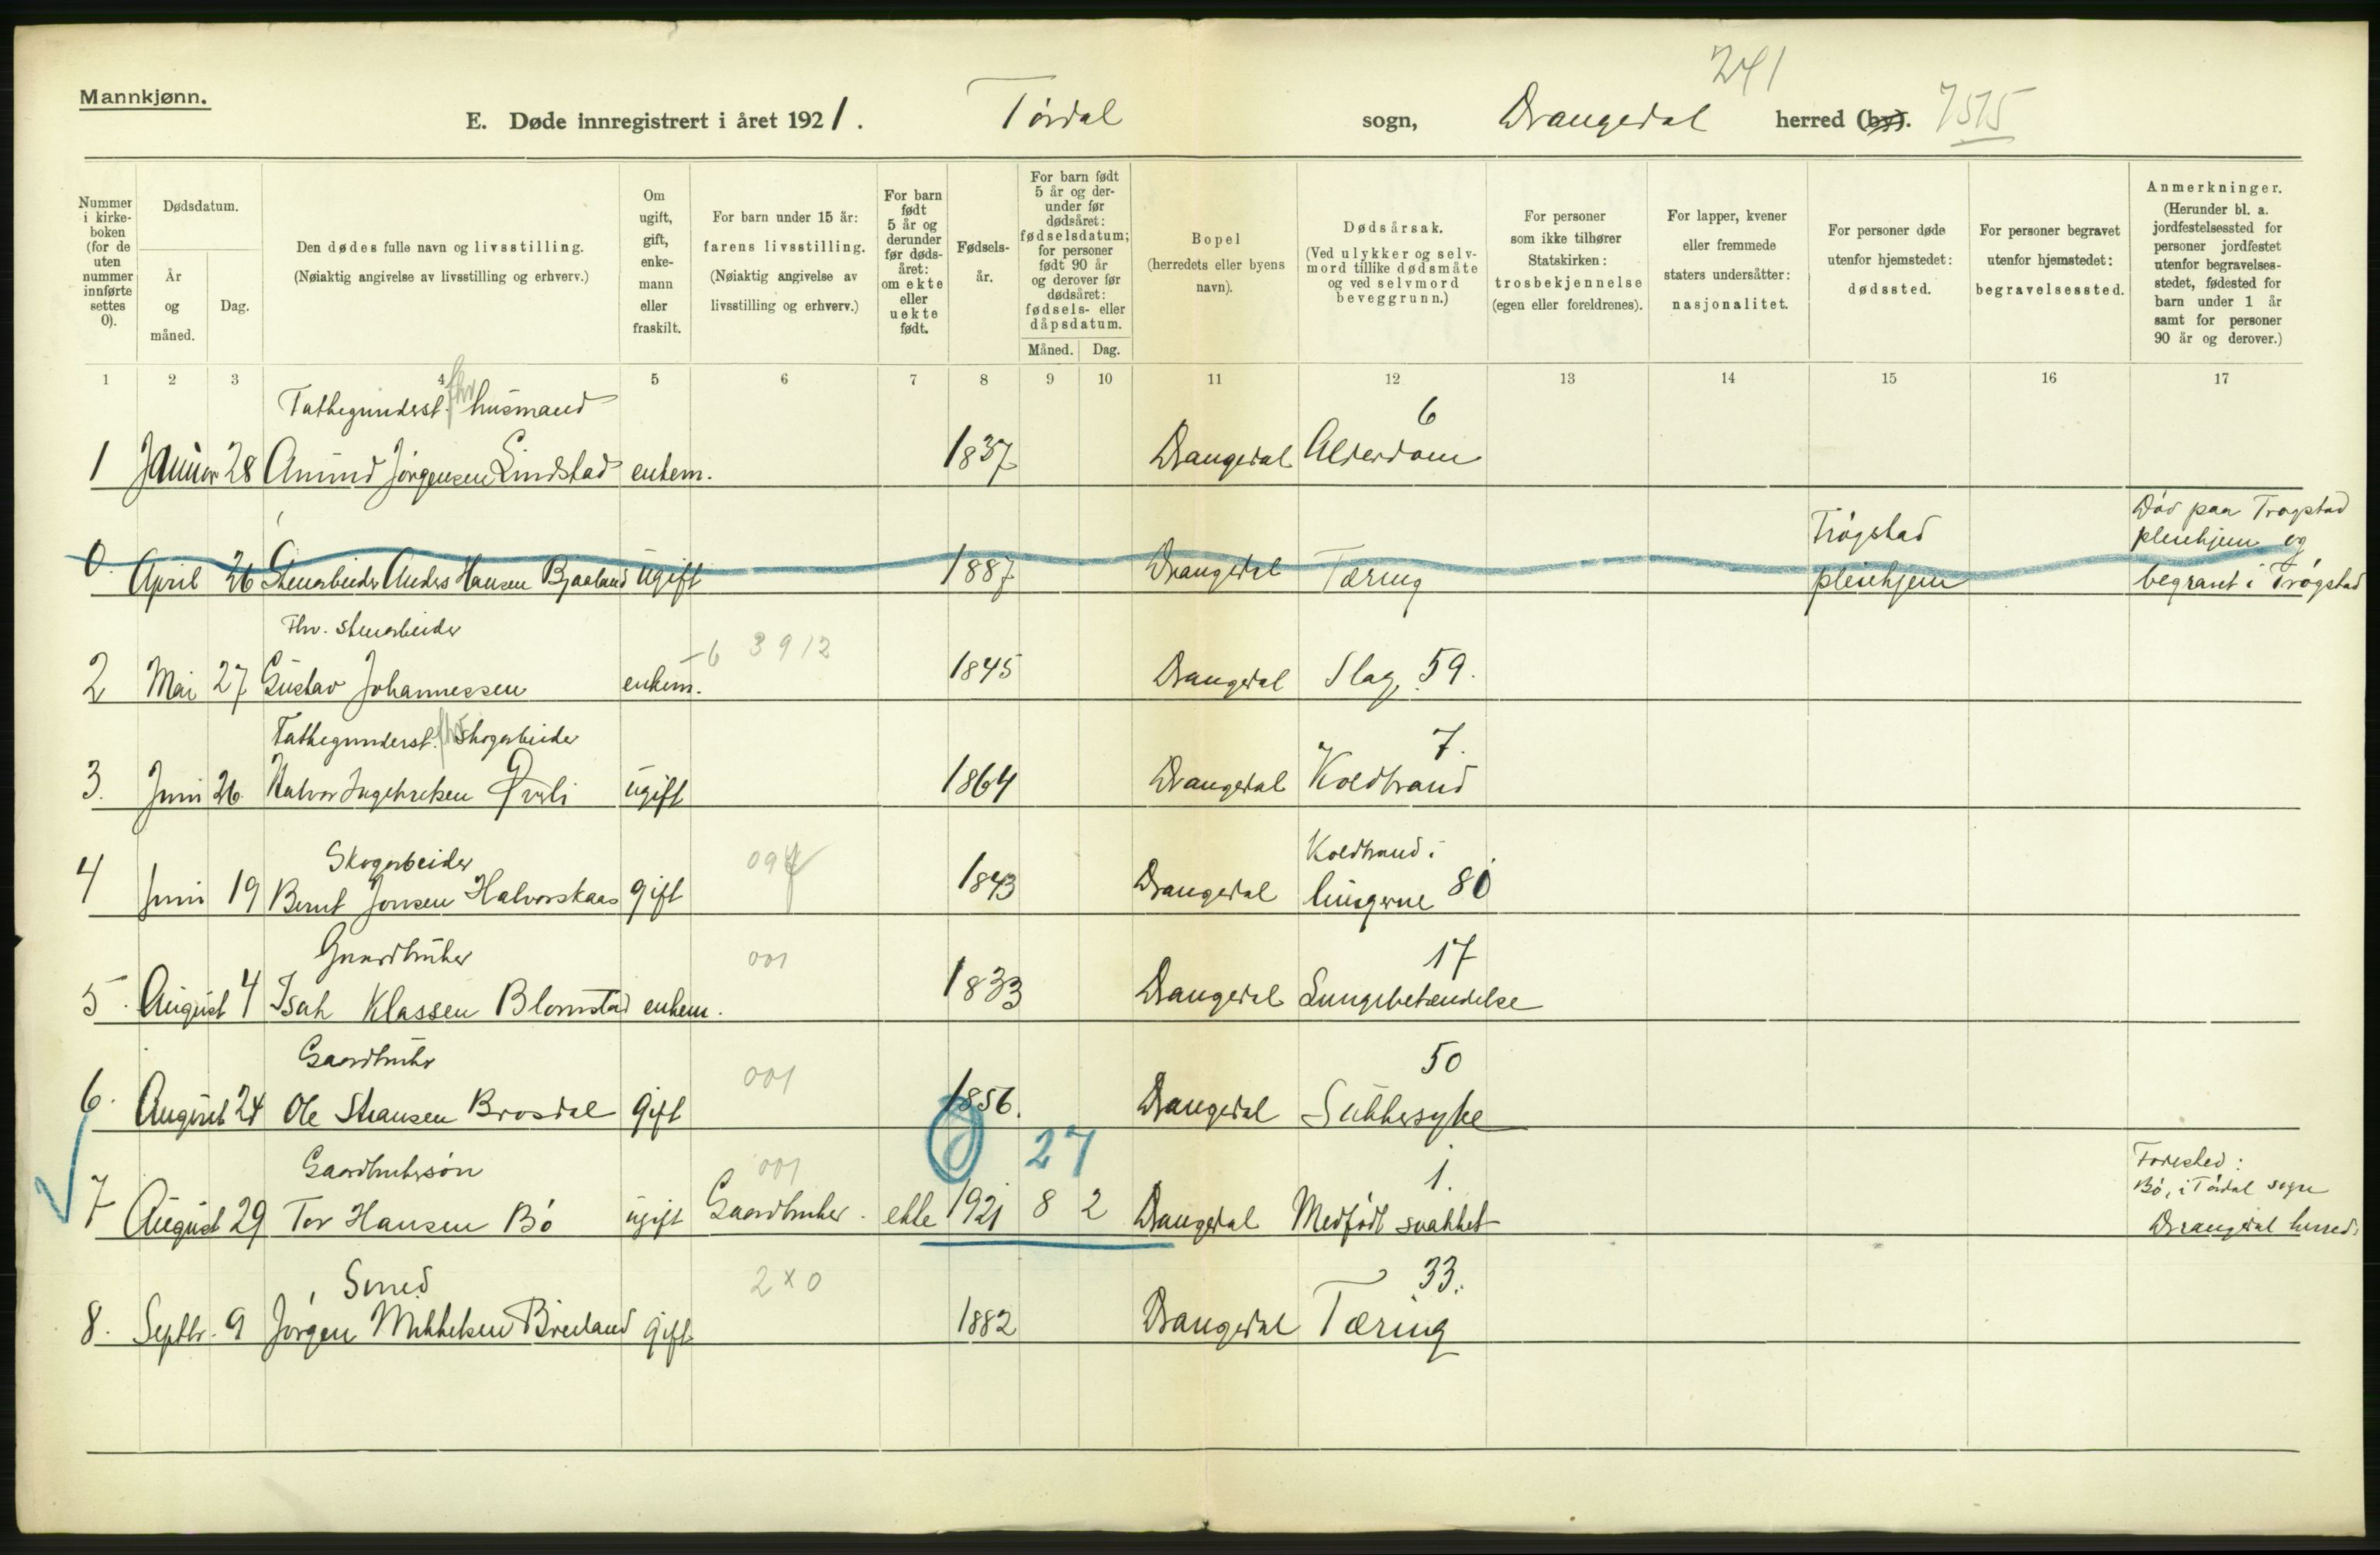 Mannkjønn.
241
E. Døde innregistrert i året 1921. Tørdal sogn, Drangedal herred (by). 7515
Nummer i kirkeboken (for de uten nummer innførte settes 0).
Dødsdatum.
År og måned.
Dag.
Den dødes fulle navn og livsstilling.
(Nøiaktig angivelse av livsstilling og erhverv.)
Om ugift, gift, enkemann eller fraskilt.
For barn under 15 år: farens livsstilling.
(Nøiaktig angivelse av livsstilling og erhverv.)
For barn født 5 år og derunder før dødsåret: om ekte eller uekte født.
Fødselsår.
For barn født 5 år og derunder før dødsåret: fødselsdatum; for personer født 90 år og derover før dødsåret: fødsels- eller dåpsdatum.
Måned. Dag.
Bopel (herredets eller byens navn).
Dødsårsak.
(Ved ulykker og selvmord tillike dødsmåte og ved selvmord beveggrunn.)
For personer som ikke tilhører Statskirken: trosbekjennelse (egen eller foreldrenes).
For lapper, kvener eller fremmede staters undersåtter: nasjonalitet.
For personer døde utenfor hjemstedet: dødssted.
For personer begravet utenfor hjemstedet: begravelsessted.
Anmerkninger.
(Herunder bl. a. jordfestelsessted for personer jordfestet utenfor begravelsesstedet, fødested for barn under 1 år samt for personer 90 år og derover.)
1 2 3 4 5 6 7 8 9 10 11 12 13 14 15 16 17
Fattigunderst. fhv husmand 6
1 Januar 28 Amund Jørgensen Lindstad enkem. 1837 Drangedal Alderdom
Trøgstad Død paa Trøgstad
pleiehjem og
0 April 26 Stenarbeider Anders Hansen Bjaaland ugift 1887 Drangedal Tæring pleiehjem begravet i Trøgstad
Fhv. stenarbeider - 6 3912
2 Mai 27 Gustav Johannessen enkem. 1845 Drangedal Slag, 59.
Fattigunderst. fhv skogarbeider 7.
3. Juni 26 Halvor Ingebretsen Øvrli ugift 1864 Drangedal Koldbrand
Skogarbeider 097 Koldbrand i
4 Juni 19 Bernt Jonsen Halvorskaas gift 1843 Drangedal lungerne 80
Gaardbruker 001 17
5. August 4 Isak Klassen Blomstad enkem. 1833 Drangedal Lungebetændelse
Gaardbruker 001 50
6. August 24 Ole Stiansen Brosdal gift 1856. Drangedal Sukkersyke
27
Gaardbrukersøn 001 1. Fødested:
Bø, i Tørdal sogn
7 August 29 Tor Hansen Bø ugift Gaardbruker. ekte 1921 8 2 Drangedal Medfødt svakhet Drangedal herred.
Smed 2x0 33.
8. Septbr. 9 Jørgen Mikkelsen Breiland gift 1882 Drangedal Tæring